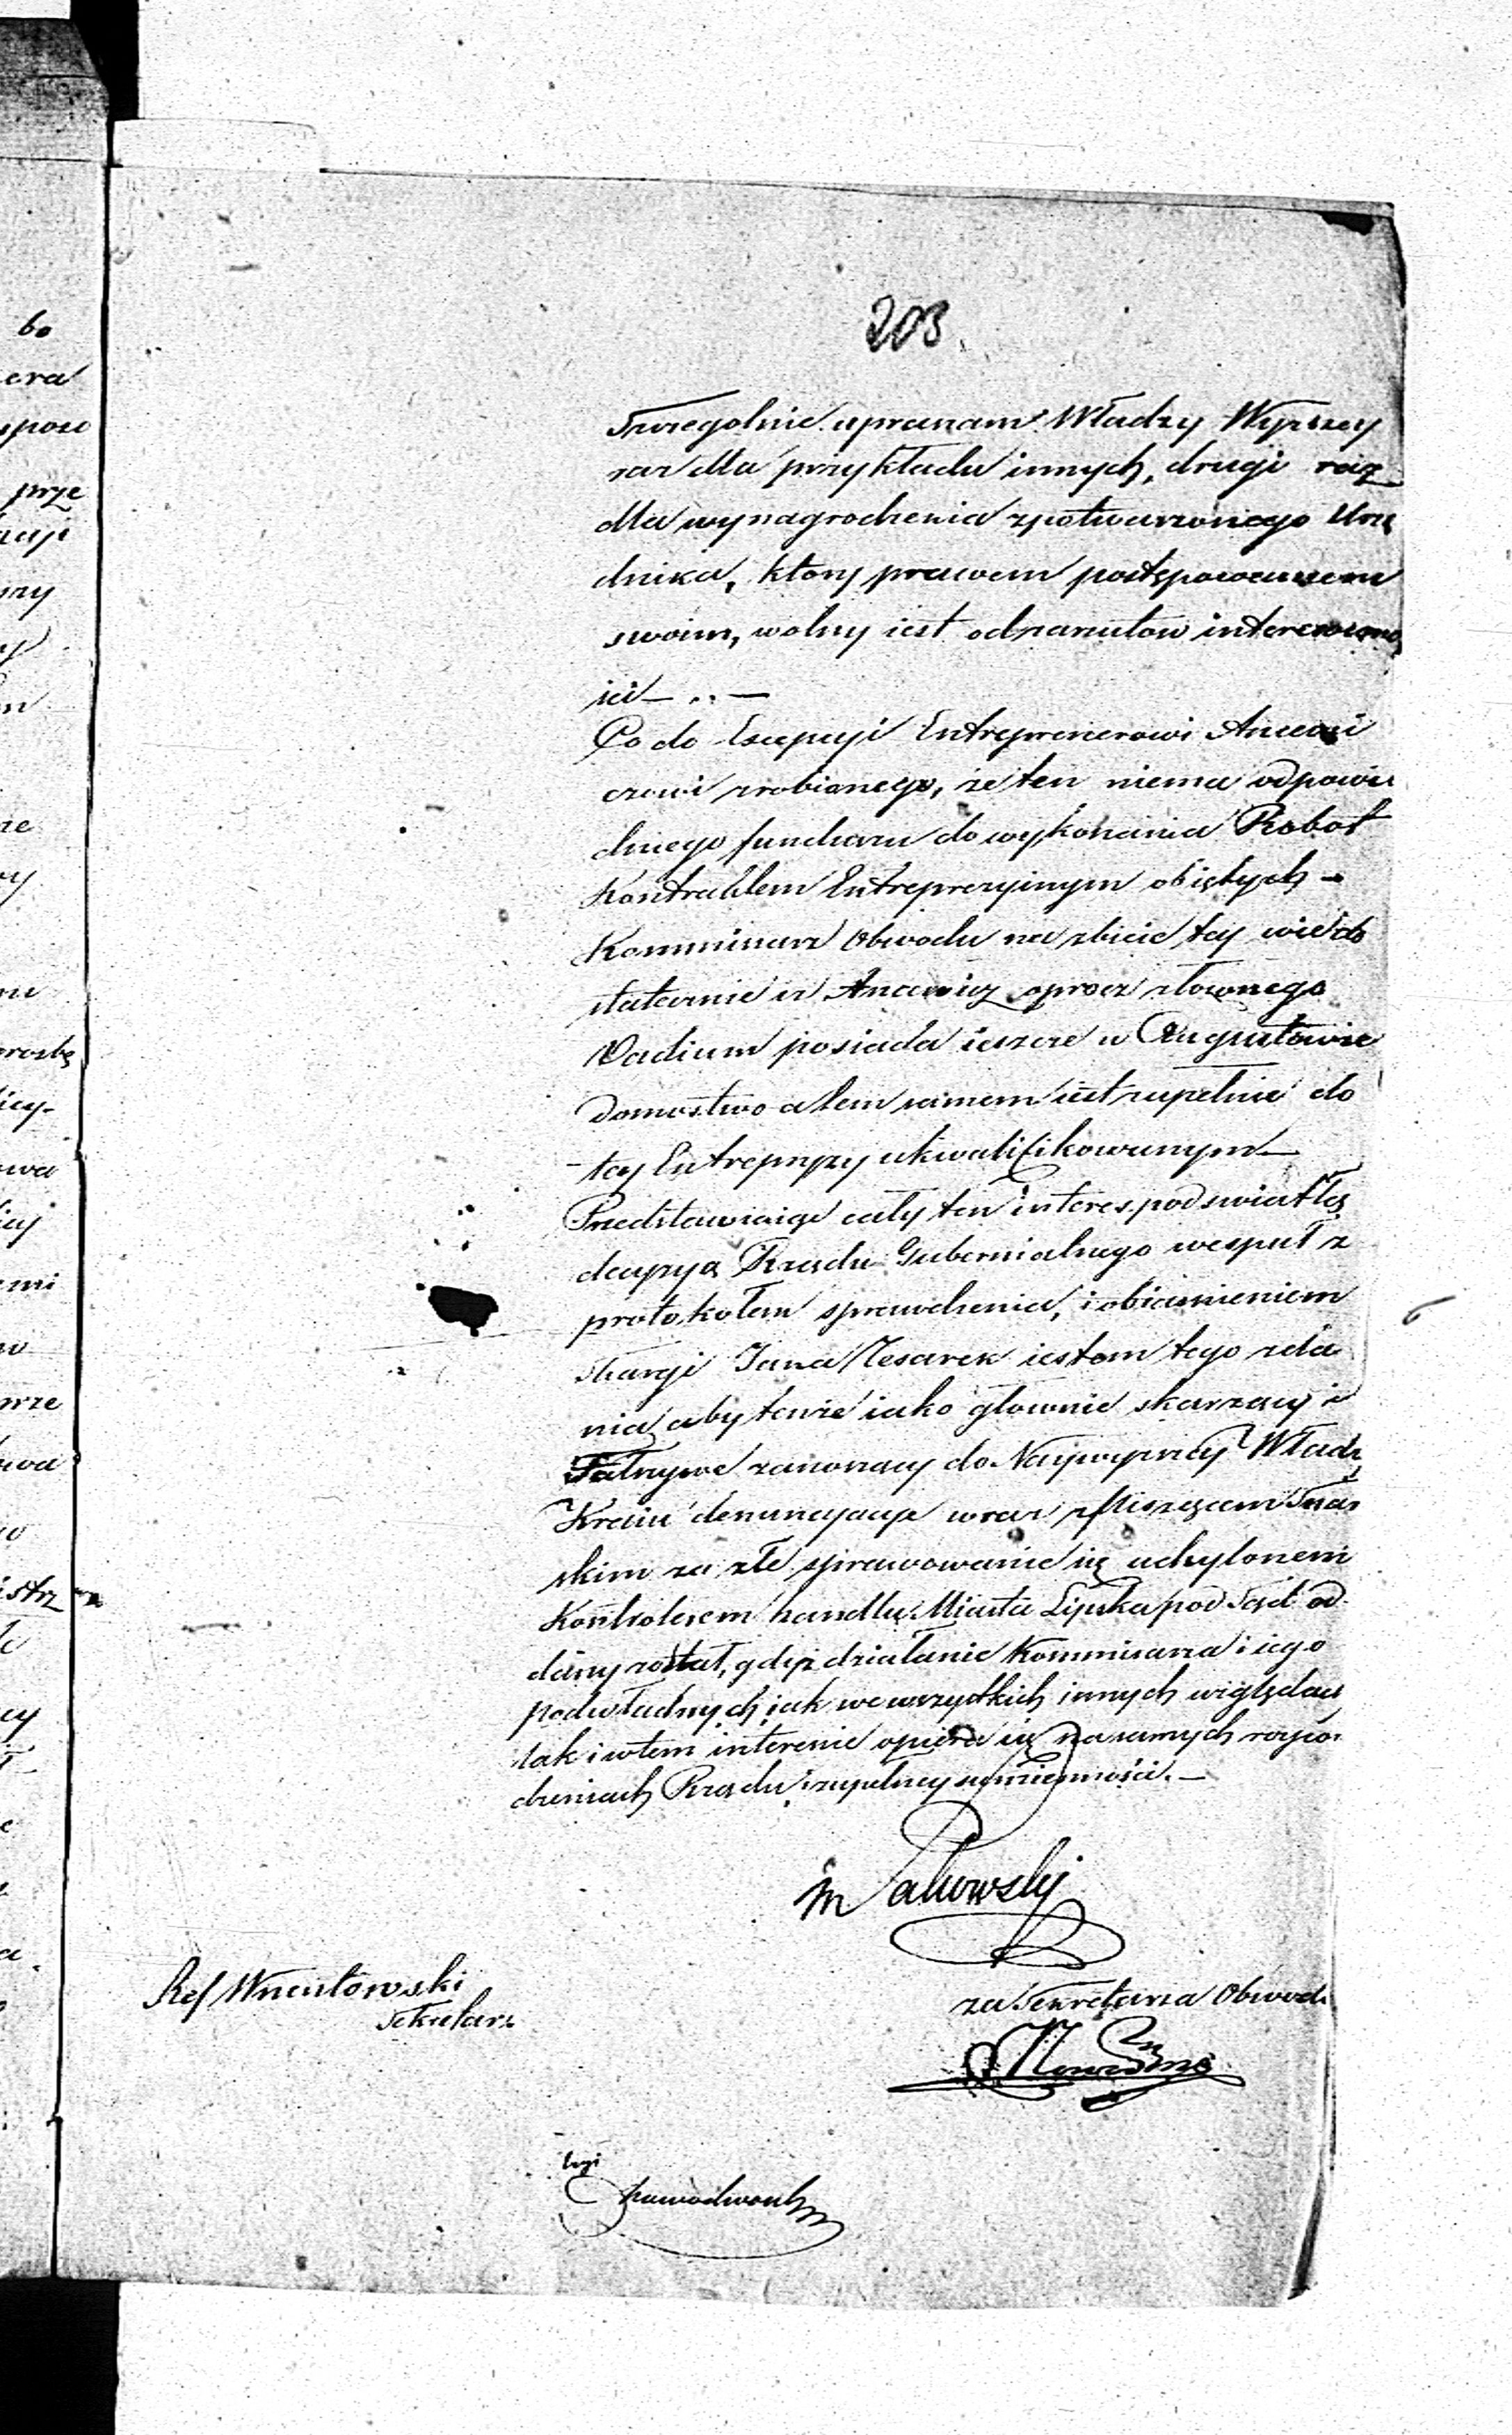 203
Szczegolnie upraszam Władzy Wyższey
raz dla przykładu innych, drugi raz
dla wynagrodzenia spotwarzonego Urzę
dnika, ktory prawem postępowaniem
swoim, wolny iest od zarzutow interesowno
ści — .. —
Co do Excepcyi Entreprenerowi Ancewi
czowi zrobionego, że ten niema odpowie
dniego funduszu do wykonania Robot
Kontraktem Entrepryzyinym obiętych —
Kommissarz Obwodu na zbicie tey wie do
statecznie iż Ancewicz oprocz złożonego
Vadium posiada ieszcze w Augustowie
Domostwo a tem samem iest zupełnie do
tey Entrepryzy ukwalifikowanym —
Przedstawiaiąc cały ten interes pod swiatłą
decyzyą Rządu Gubernialnego wespuł z
protokołem sprawdzenia, i obiasnieniem
skargi Jana Cesarek iestem tego zda
nia aby tenże iako głownie skarzący i
Fałszywe zanoszący do Naywyższey Władz
Kraiu denuncyacye wraz z
skim za złe sprawowanie się uchylonem
Kontrolerem handlu Miasta Lipska pod Sąd od
dany został, gdyż działanie Kommissarza i iego
podwładnych jak we wszystkich innych względach
tak i w tem interesie opiera się na samych rozpo
dzeniach Rządu i zupełney sumienności. —
za Sekretarza Obwod.
Ref Wnentowski
Sekretarz